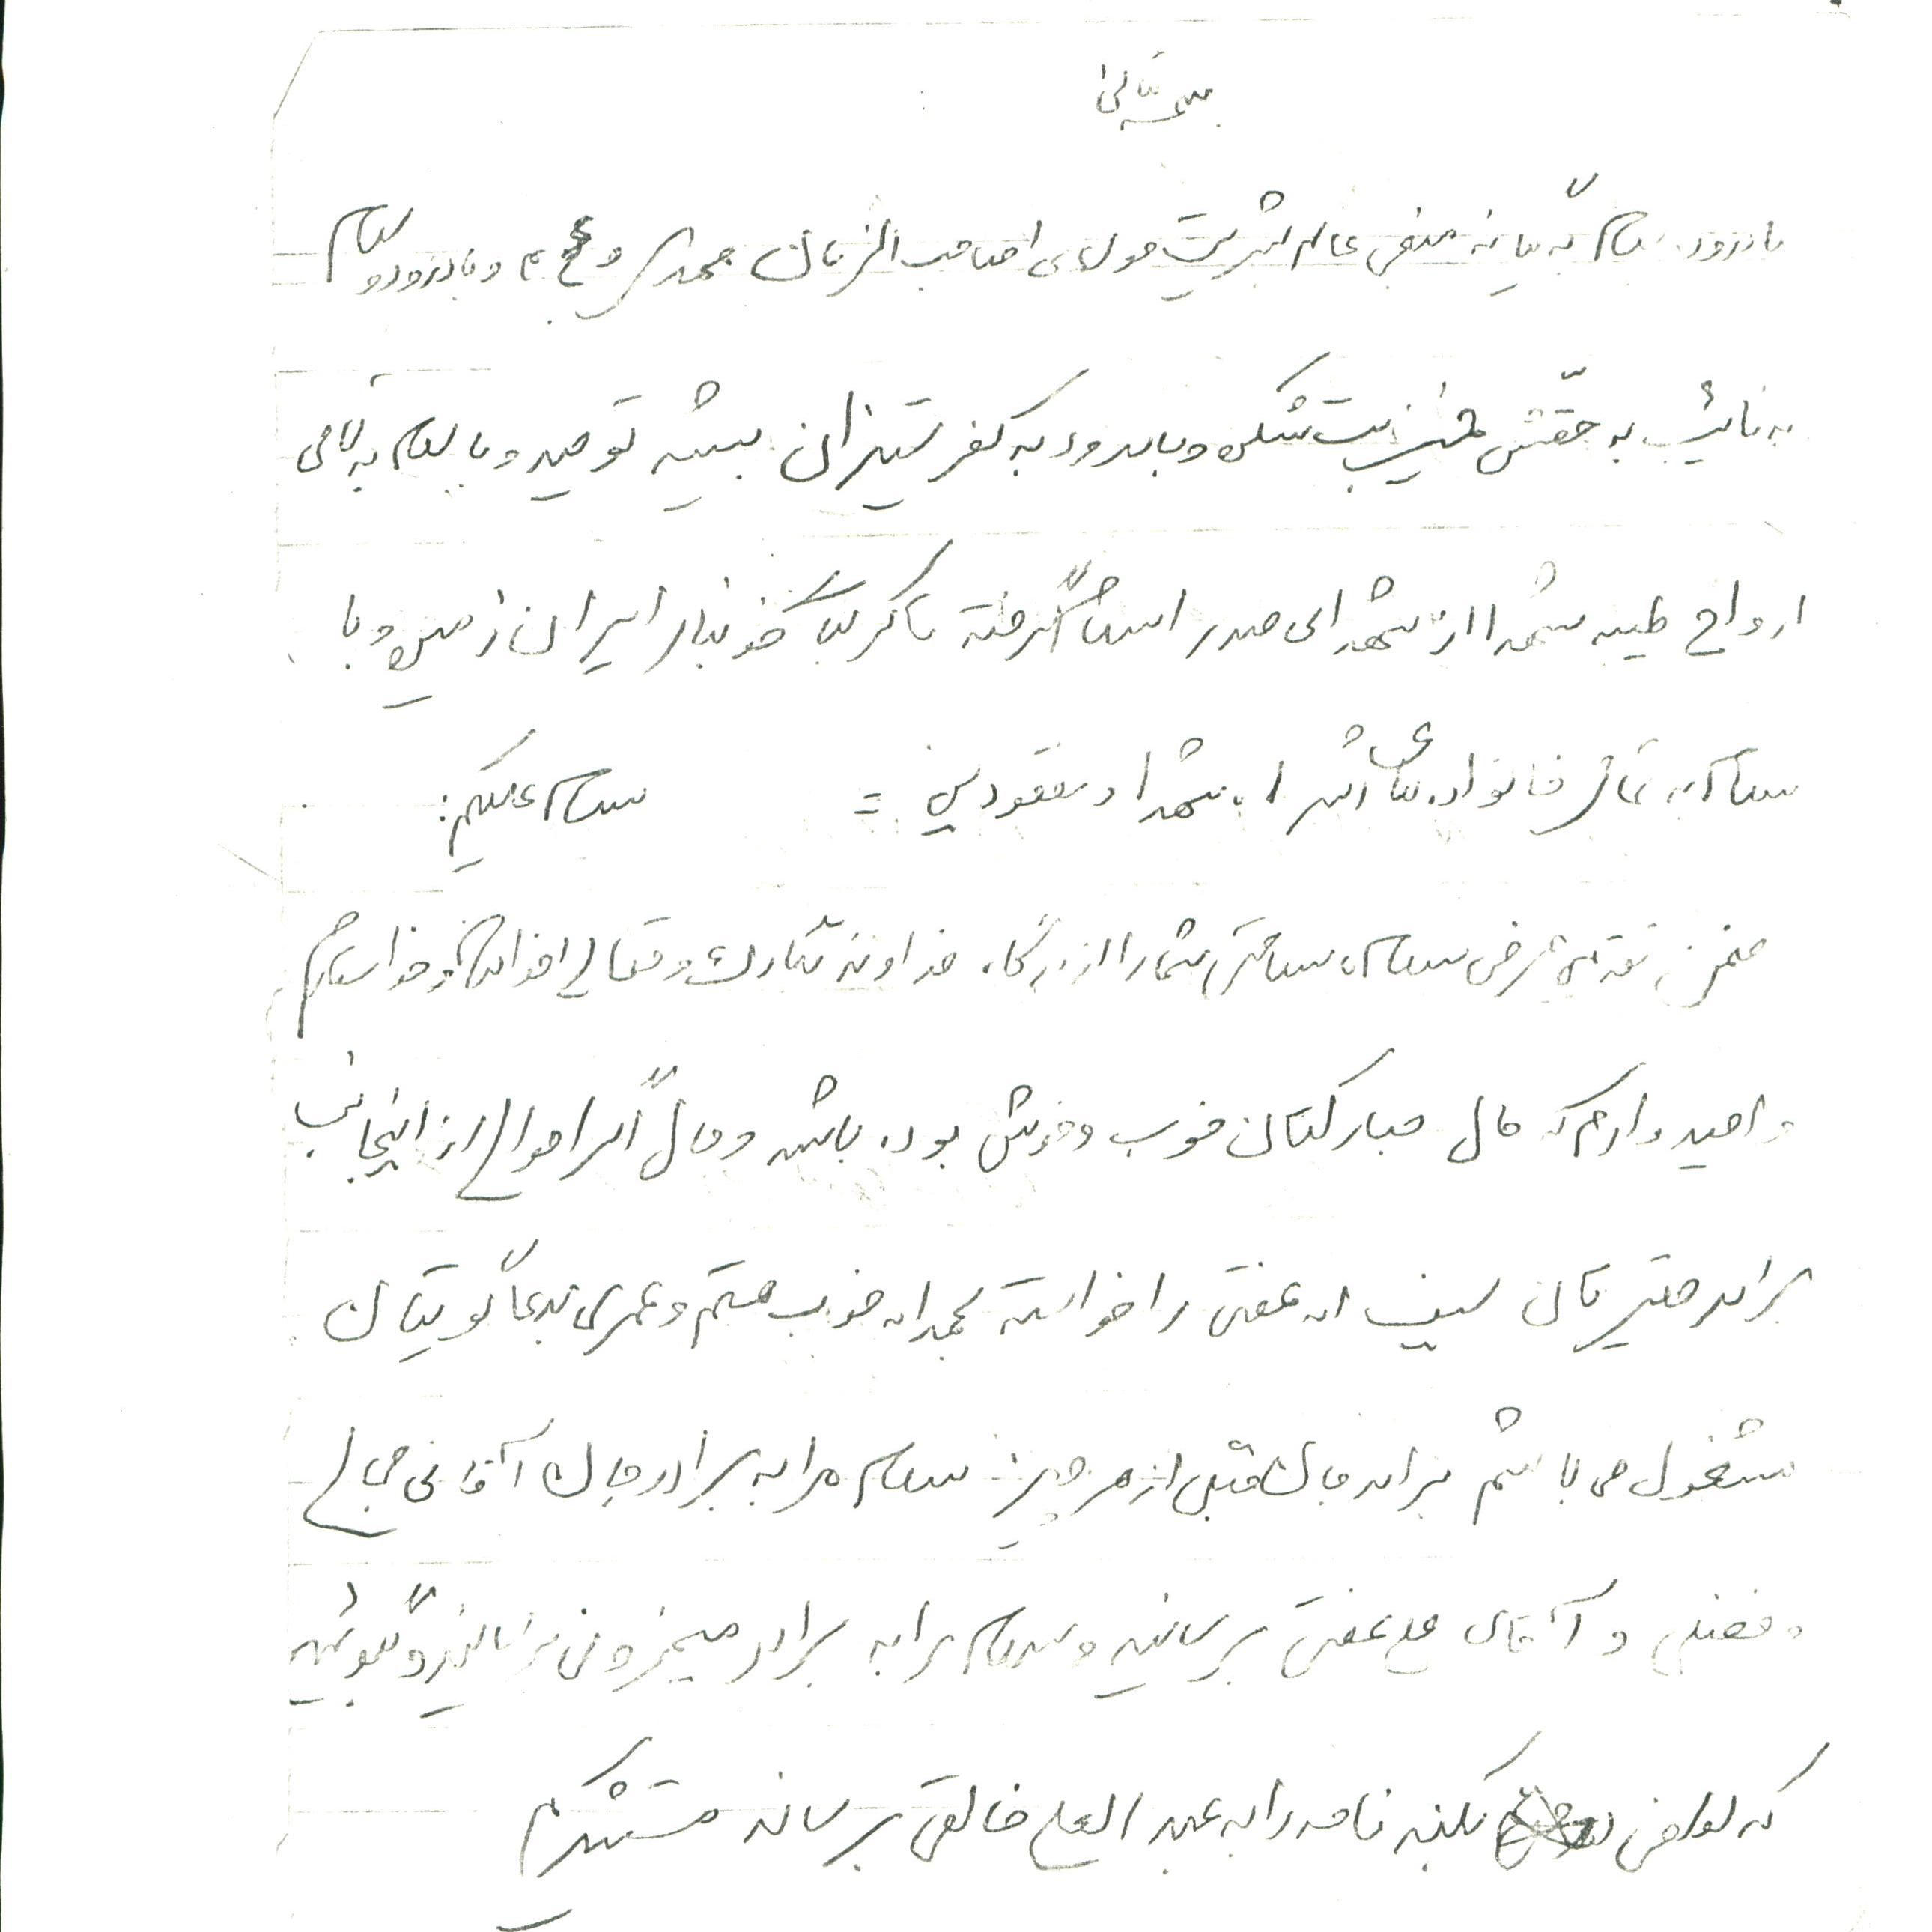 بسمه تعالی
با درود و سلام به یگانه منجی عالم بشریت مولای صاحب الزمان مهدی عج و با درود و سلام
به نائب به حقش خمینی بت شکن و با درود به کفر ستیزان بیشه توحید و با سلام به تمامی
ارواح طیبه شهدا از شهدای صدر اسلام گرفته تا کربلای خونبار ایران زمین و با
سلام به تمامی خانواده شهدا و مفقودین = سلام علیکم:
ضمن تقدیم عرض سلام، سلامتی شما را از درگاه خداوند تبارک و تعالی خواهان و خواستارم
و امید دارم که حال مبارکتان خوب و خوش بوده باشد و حال اگر احوالی از اینجانب
برادر حقیرتان سیف اله عفتی را خواسته بحمداله خوب هستم و عمری بدعاگویتان
مشغول می باشم برادر جان قبل از هر چیز سلام مرا به برادر جان آقای جمالی
و فضلی و آقای عفتی برسانید و سلام مرا به برادر برسانید و بگوئید
که لطفی بکند نامه را به عبد العلی خالقی برساند متشکرم